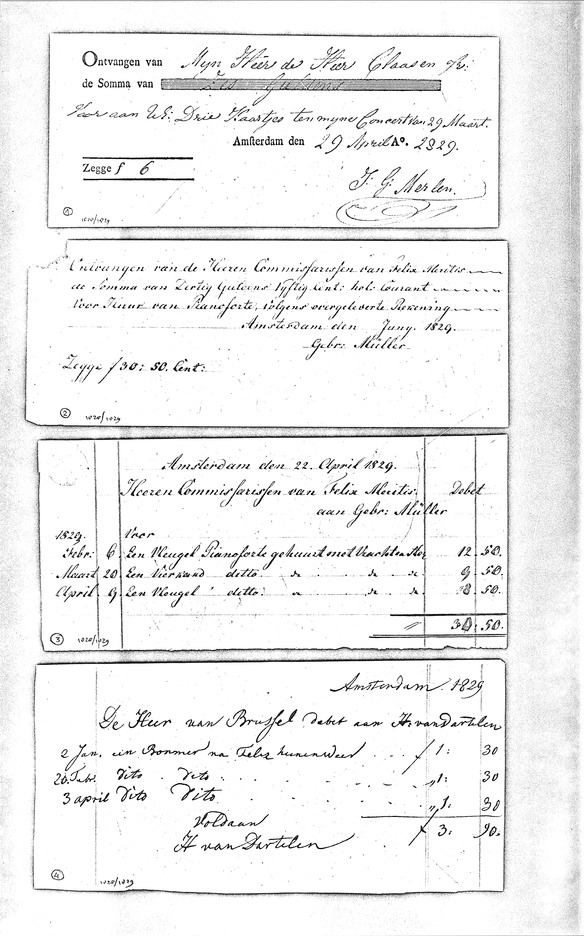 Ontvangen van Mijn Heer de Heer Claasen Jr:
de Somma van Zes Guldens
Voor aan UE: Drie Kaartjes ten myne Concert van 29 Maart.
Amsterdam den 29 April Aº. 1829.
Zegge f 6
J: G: Merlen.
1 1020/1029
Ontvangen van de Heeren Commissarissen van Felix Meritis
de Somma van Dertig Guldens Vyftig Cent: hol: Courant
Voor Huur van Pianoforte, volgens overgeleverte Rekening
Amsterdam den Juny. 1829.
Gebr: Müller
Zegge f 30: 50. Cent:
2 1020/1029
Amsterdam den 22. April 1829.
Heeren Commissarissen van Felix Meritis. Debet
aan Gebr: Müller
1829. Voor
Febr: 6. Een Vleugel Pianoforte gehuurt met 12. 50.
Maart 20 Een Vierkand ditto do do do 9. 50.
April 9 Een Vleugel ditto: do do do 8. 50.
30. 50.
3 1020/1029
Amsterdam. 1829
De Heer van Brussel debet aan H. van Dartelen
2 Jan. een Bommer na Felix heen en Weer f 1: 30
20. Febr. Dito Dito „ 1: 30
3 april Dito Dito „ 1: 30
Voldaan f 3: 90.
H van Dartelen
4 1020/1029